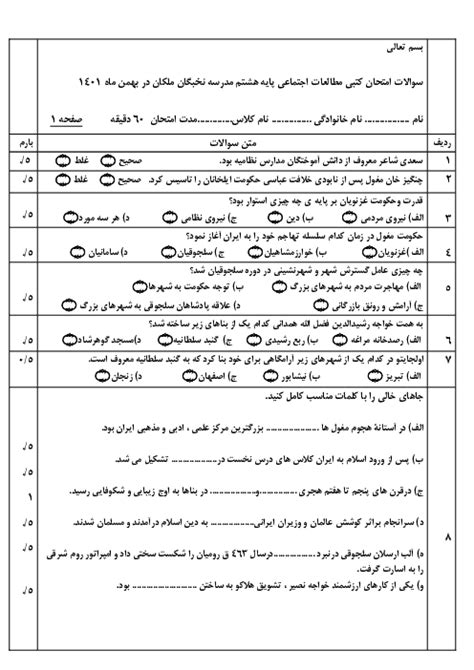 بسم تعالی
سوالات امتحان کتبی مطالعات اجتماعی پایه هشتم مدرسه نخبگان ملکان در بهمن ماه ١٤٠١
نام .............. نام خانوادگی .............. نام کلاس............مدت امتحان ٦٠ دقیقه صفحه ١
ردیف متن سوالات بارم
١ سعدی شاعر معروف از دانش آموختگان مدارس نظامیه بود. صحیح غلط ٥/.
٢ چنگیز خان مغول پس از نابودی خلافت عباسی حکومت ایلخانان را تاسیس کرد. صحیح غلط ٥/.
٣ قدرت وحکومت غزنویان بر پایه ی چه چیزی استوار بود؟
الف) نیروی مردمی ب) دین ج) نیروی نظامی د) هر سه مورد ٥/.
٤ حکومت مغول در زمان کدام سلسله تهاجم خود را به ایران آغاز نمود؟
الف) غزنویان ب) خوارزمشاهیان ج) سلجوقیان د) سامانیان ٥/.
٥ چه چیزی عامل گسترش شهر و شهرنشینی در دوره سلجوقیان شد؟
الف) مهاجرت مردم به شهرهای بزرگ ب) توجه حکومت به شهرها
ج) آرامش و رونق بازرگانی د) علاقه پادشاهان سلجوقی به شهرهای بزرگ ٥/.
٦ به همت خواجه رشیدالدین فضل الله همدانی کدام یک از بناهای زیر ساخته شد؟
الف) رصدخانه مراغه ب) ربع رشیدی ج) گنبد سلطانیه د)مسجد گوهرشاد ٥/.
٧ اولجایتو در کدام یک از شهرهای زیر آرامگاهی برای خود بنا کرد که به گنبد سلطانیه معروف است. ٠/٥
الف) تبریز ب) نیشابور ج) اصفهان د) زنجان
٨ جاهای خالی را با کلمات مناسب کامل کنید.
الف) در آستانهٔ هجوم مغول ها .................. بزرگترین مرکز علمی ، ادبی و مذهبی ایران بود. ٥/.
ب) پس از ورود اسلام به ایران کلاس های درس نخست در................ تشکیل می شد. ٥/.
ج) درقرن های پنجم تا هفتم هجری ..............و.............. در بناها به اوج زیبایی و شکوفایی رسید. ١
د) سرانجام براثر کوشش عالمان و وزیران ایرانی............... به دین اسلام درآمدند و مسلمان شدند. ٥/.
ه) آلب ارسلان سلجوقی درنبرد ...............درسال ٤٦٣ ق رومیان را شکست سختی داد و امپراتور روم شرقی ٥/.
را به اسارت گرفت.
و) یکی از کارهای ارزشمند خواجه نصیر ، تشویق هلاکو به ساختن ...................... بود. ٥/.